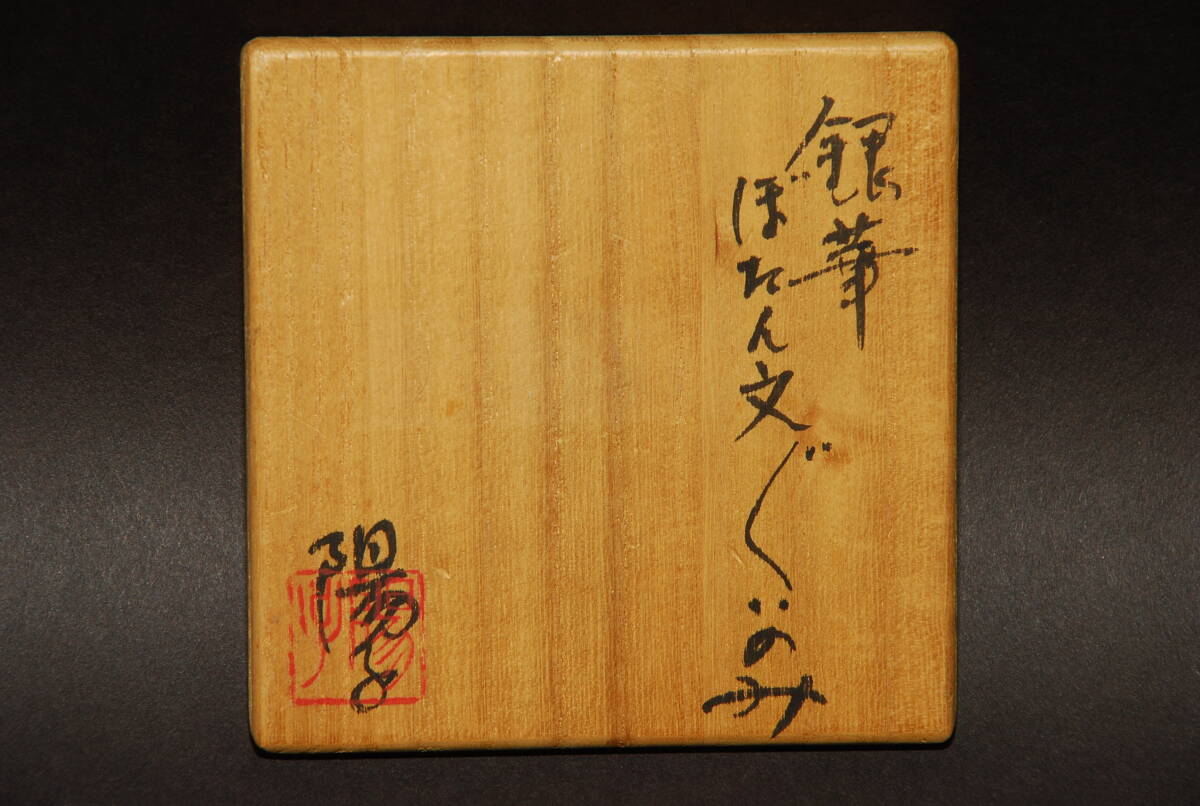 銀華
ぼたん文ぐいのみ
陽子